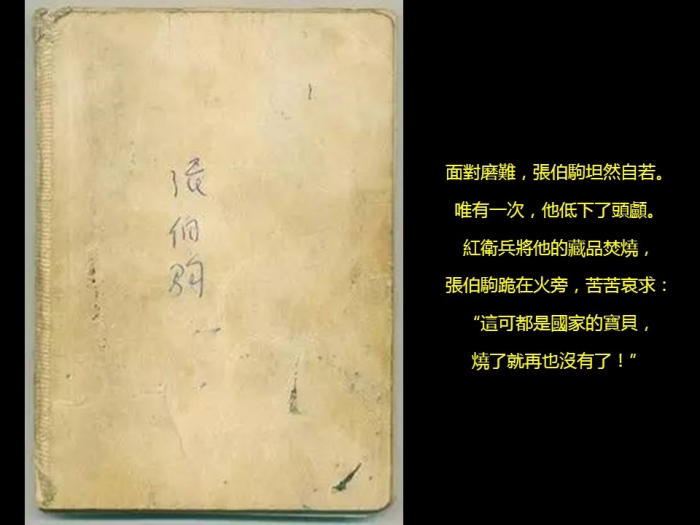 張伯駒
面對磨難，張伯駒坦然自若。
唯有一次，他低下了頭顱。
紅衛兵將他的藏品焚燒，
張伯駒跪在火旁，苦苦哀求：
“這可都是國家的寶貝，
燒了就再也沒有了！”